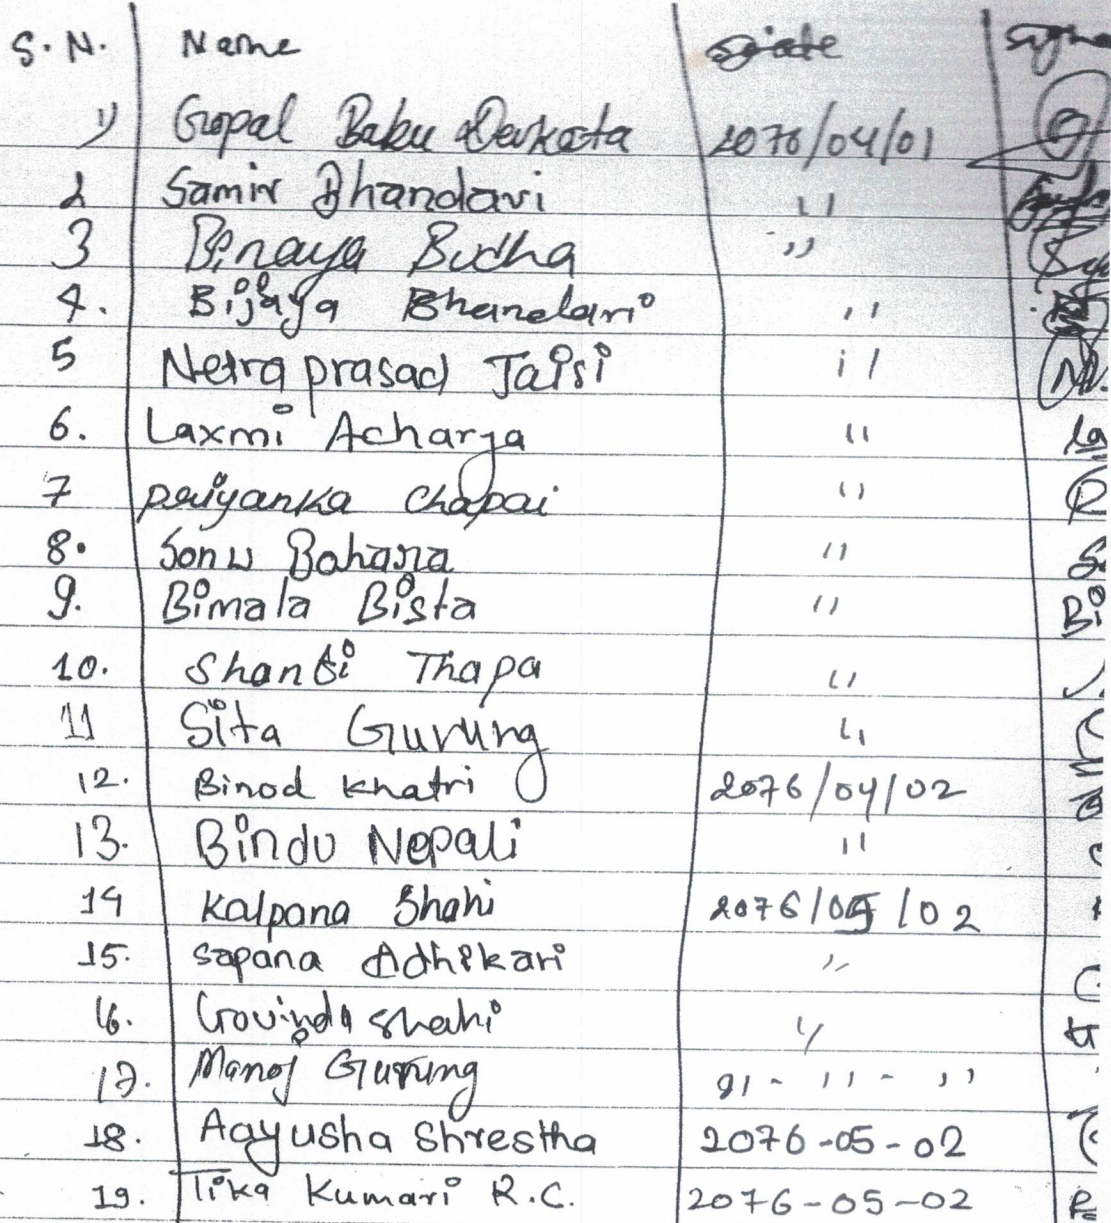 S.N. Name Date Signa
1) Gopal Babu Devkota 2076/04/01
2 Samir Bhandari 〃
3 Binaya Budha 〃
4. Bijaya Bhandari 〃
5 Netra prasad Jaisi 〃
6. Laxmi Acharya 〃
7 Priyanka Chapai 〃
8. Sonu Bohara 〃
9. Bimala Bista 〃 Bi
10. Shanti Thapa 〃
11 Sita Gurung 〃
12. Binod Khatri 2076/04/02
13. Bindu Nepali 〃
14 Kalpana Shahi 2076/05/02
15. Sapana Adhikari 〃
16. Govinda Shahi 〃
17. Manoj Gurung 〃 - 〃 - 〃
18. Aayusha Shrestha 2076-05-02
19. Tika Kumari K.C. 2076-05-02